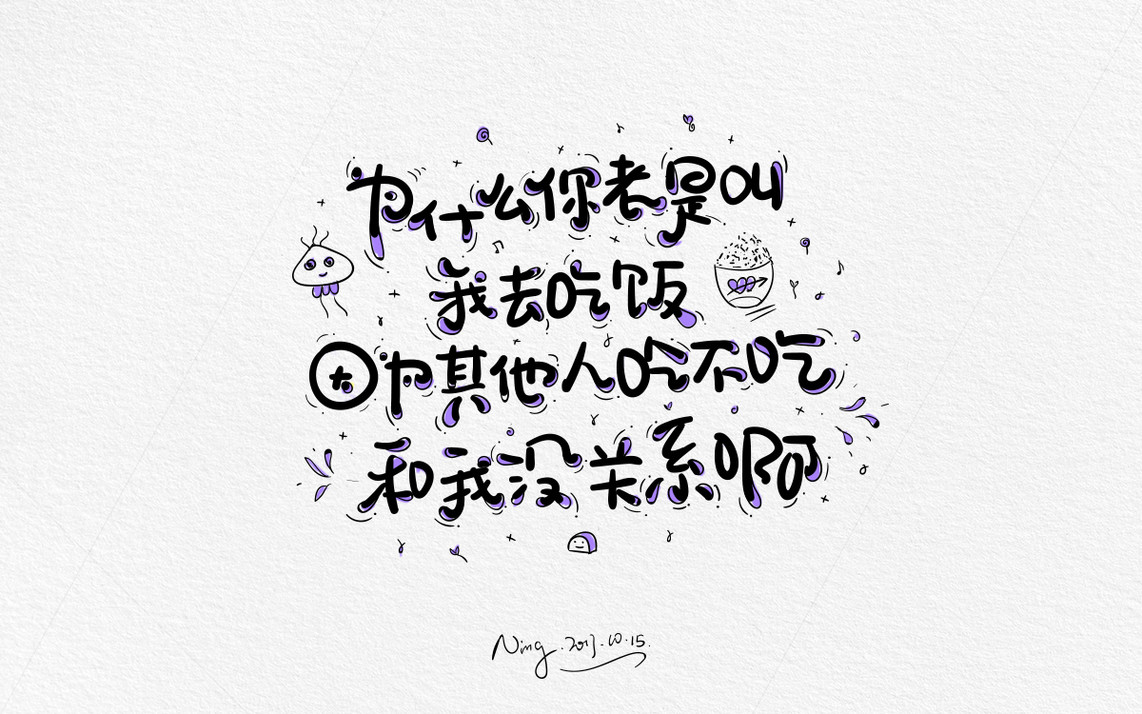 为什么你老是叫
我去吃饭
因为其他人吃不吃
和我没关系啊
Ning.2017.10.15.